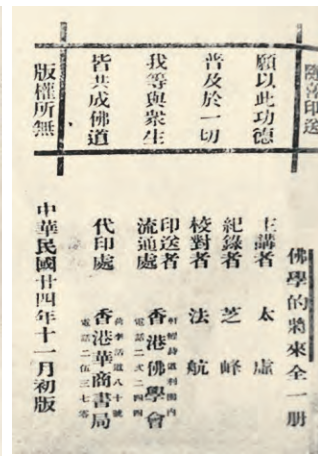 隨喜印送
願以此功德
普及於一切
我等與眾生
皆共成佛道
版權所無
佛學的將來全一册
主講者 太虛
紀錄者 芝峰
校對者 法航
印送者
流通處
香港佛學會
代印處
香港華商書局
荷李活道八十號
電話二伍三七零
中華民國廿四年十一月初版